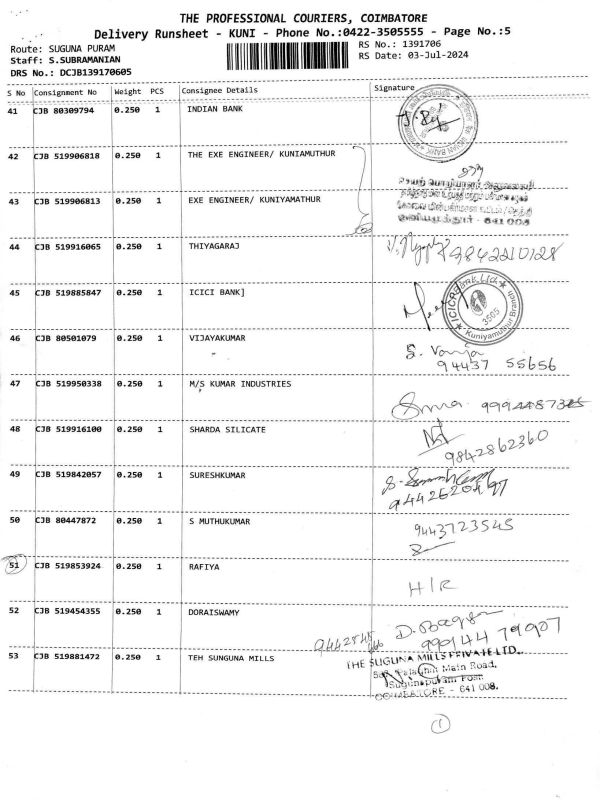 THE PROFESSIONAL COURIERS, COIMBATORE
Delivery Runsheet - KUNI - Phone No.:0422-3505555 - Page No.:5
Route: SUGUNA PURAM
RS No.: 1391706
Staff: S.SUBRAMANIAN
RS Date: 03-Jul-2024
DRS No.: DCJB139170605
S No Consignment No Weight PCS Consignee Details Signature
41 CJB 80309794 0.250 1 INDIAN BANK
42 CJB 519906818 0.250 1 THE EXE ENGINEER/ KUNIAMUTHUR
43 CJB 519906813 0.250 1 EXE ENGINEER/ KUNIYAMATHUR
641 008
44 CJB 519916065 0.250 1 THIYAGARAJ 9842210128
45 CJB 519885847 0.250 1 ICICI BANK]
ICICI Bank Ltd. 3505 Kuniyamuthur Branch
46 CJB 80501079 0.250 1 VIJAYAKUMAR
S. Vanja
94437 55656
47 CJB 519950338 0.250 1 M/S KUMAR INDUSTRIES
48 CJB 519916100 0.250 1 SHARDA SILICATE
9842862360
49 CJB 519842057 0.250 1 SURESHKUMAR
50 CJB 80447872 0.250 1 S MUTHUKUMAR
9443723545
51 CJB 519853924 0.250 1 RAFIYA
H/R
52 CJB 519454355 0.250 1 DORAISWAMY
99944 79907
53 CJB 519881472 0.250 1 TEH SUNGUNA MILLS
THE SUGUNA MILLS PRIVATE LTD.,
Palaghat Main Road,
Sugunapuram Post
COIMBATORE - 641 008.
1